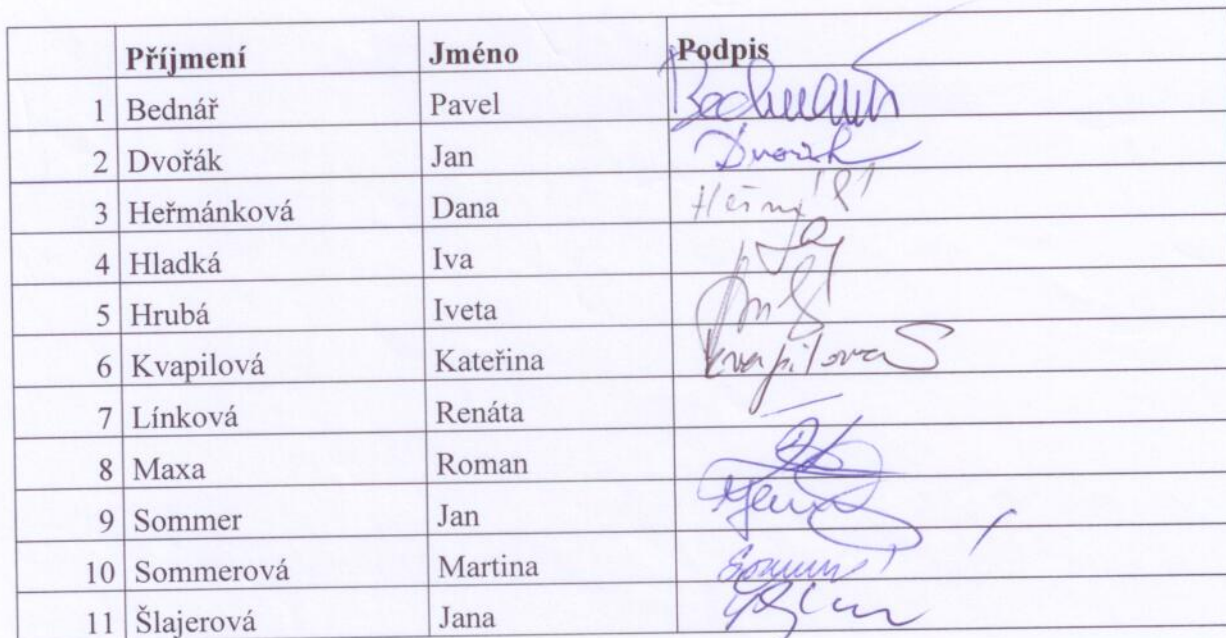 Příjmení Jméno Podpis
1 Bednář Pavel
2 Dvořák Jan Dvořák
3 Heřmánková Dana
4 Hladká Iva
5 Hrubá Iveta
6 Kvapilová Kateřina Kvapilová
7 Línková Renáta
8 Maxa Roman
9 Sommer Jan
10 Sommerová Martina
11 Šlajerová Jana